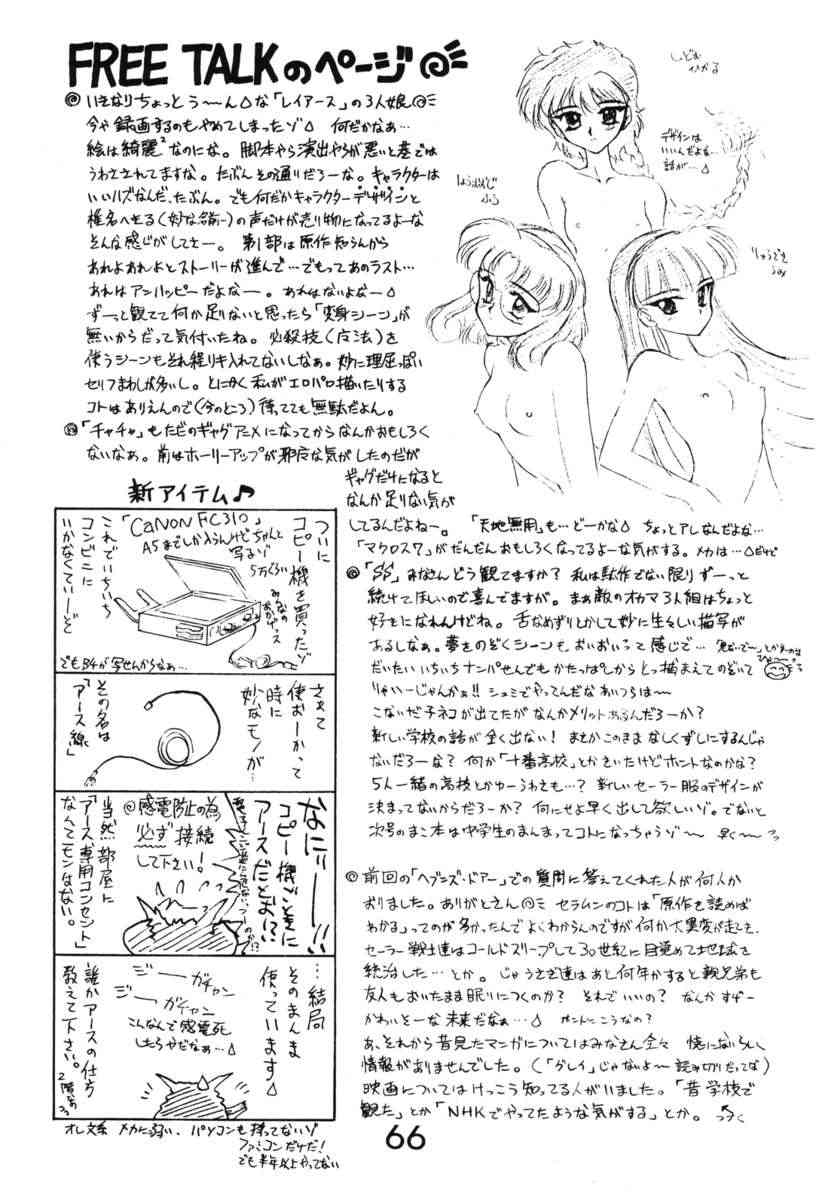 FREE TALKのページ
◎いきなりちょっとう〜〜ん△な「レイアース」の3人娘
今や録画するのもやめてしまったゾ△ 何だかなぁ…
絵は綺麗²なのにな。脚本やら演出やらが悪いと巷では
うわさされてますな。たぶんその通りだろーな。キャラクターは
いいハズなんだ、たぶん。でも何だかキャラクターデザインと
椎名へきる(妙な名前ー)の声だけが売り物になってるよーな
そんな感じがしてさー。第1部は原作知らんから
あれよあれよとストーリーが進んで…でもってあのラスト…
あれはアンハッピーだよなー。あれはないよなー△
ずーっと観てて何か足りないと思ったら「変身シーン」が
無いからだって気付いたね。必殺技(魔法)を
使うシーンもそれ程リキ入れてないしなぁ。妙に理屈っぽい
セリフまわしが多いし。とにかく私がエロパロ描いたりする
コトはありえんので(今のところ)待ってても無駄だよん。
◎「チャチャ」もただのギャグアニメになってからなんかおもしろく
ないなぁ。前はホーリーアップが邪魔な気がしたのだが
ギャグだけになると
なんか足りない気が
してるんだよねー。 「天地無用」も…どーかな△ ちょっとアレなんだよな…
「マクロス7」がだんだんおもしろくなってるよーな気がする。メカは…△だけど
しどう
ひかる
デザインは
いいんだよな…
話が…△
ほうおうじ
ふう
りゅうざき
うみ
◎「SS」みなさんどう観てますか? 私は駄作でない限りずーっと
続けてほしいので喜んでますが。まぁ敵のオカマ3人組はちょっと
好きになれんけどね。舌なめずりとかして妙に生々しい描写が
あるしなぁ。夢をのぞくシーンもおいおいって感じで…
だいたいいちいちナンパせんでもかたっぱしからとっ捕まえてのぞいて
りゃいーじゃんかぁ!! シュミでやってんだなあいつらは〜
こないだ子ネコが出てたがなんかメリットあるんだろーか?
新しい学校の話が全く出ない! まさかこのままなしくずしにするんじゃ
ないだろーな? 何か「十番高校」とかきいたけどホントなのかな?
5人一緒の高校とかゆーうわさも…? 新しいセーラー服のデザインが
決まってないからだろーか? 何にせよ早く出して欲しいゾ。でないと
次号のまこ本は中学生のまんまってコトになっちゃうゾ〜 早く〜
◎前回の「ヘブンズ・ドアー」での質問に答えてくれた人が何人か
おりました。ありがとさん セラムンのコトは「原作を読めば
わかる」ってのが多かったんでよくわからんのですが何か大異変が起こって、
セーラー戦士達はコールドスリープして30世紀に目覚めて地球を
統治した…とか。じゃうさぎ達はあと何年かすると親兄弟も
友人もおいたまま眠りにつくのか? それでいいの? なんかすげー
かわいそーな未来だなぁ…△ ホントにこうなの?
あ、それから昔見たマンガについてはみなさん全々
情報がありませんでした。(「グレイ」じゃないよ〜 読み切りだってな)
映画についてはけっこう知ってる人がいました。「昔学校で
観た」とか「NHKでやってたような気がする」とか。 つづく
新アイテム♪
ついに
コピー機を買ったゾ
「CANON FC310」
A5までしか入らんけどちゃんと
写るゾ
5万くらい
みんなの
おかげっス
これでいちいち
コンビニに
いかなくていーぞ
でもB4が写せんからなぁ…
さぁて
使おーかって
時に
妙なモノが…
その名は
「アース線」
なにィーー!!
コピー機ごときに
アースだとお!?
◎感電防止の為
必ず接続
して下さい!
当然部屋に
「アース専用コンセント」
なんてモンはない。
…結局
そのまんま
使っています△
ジーーガチャン
ジーーガチャン
こんなんで感電死
したらやだなぁ…△
誰かアースの仕方
教えて下さい。
2階なの
オレ文系 メカに弱い、パソコンも持ってないゾ
ファミコンだけだ!
でも半年以上やってない
66